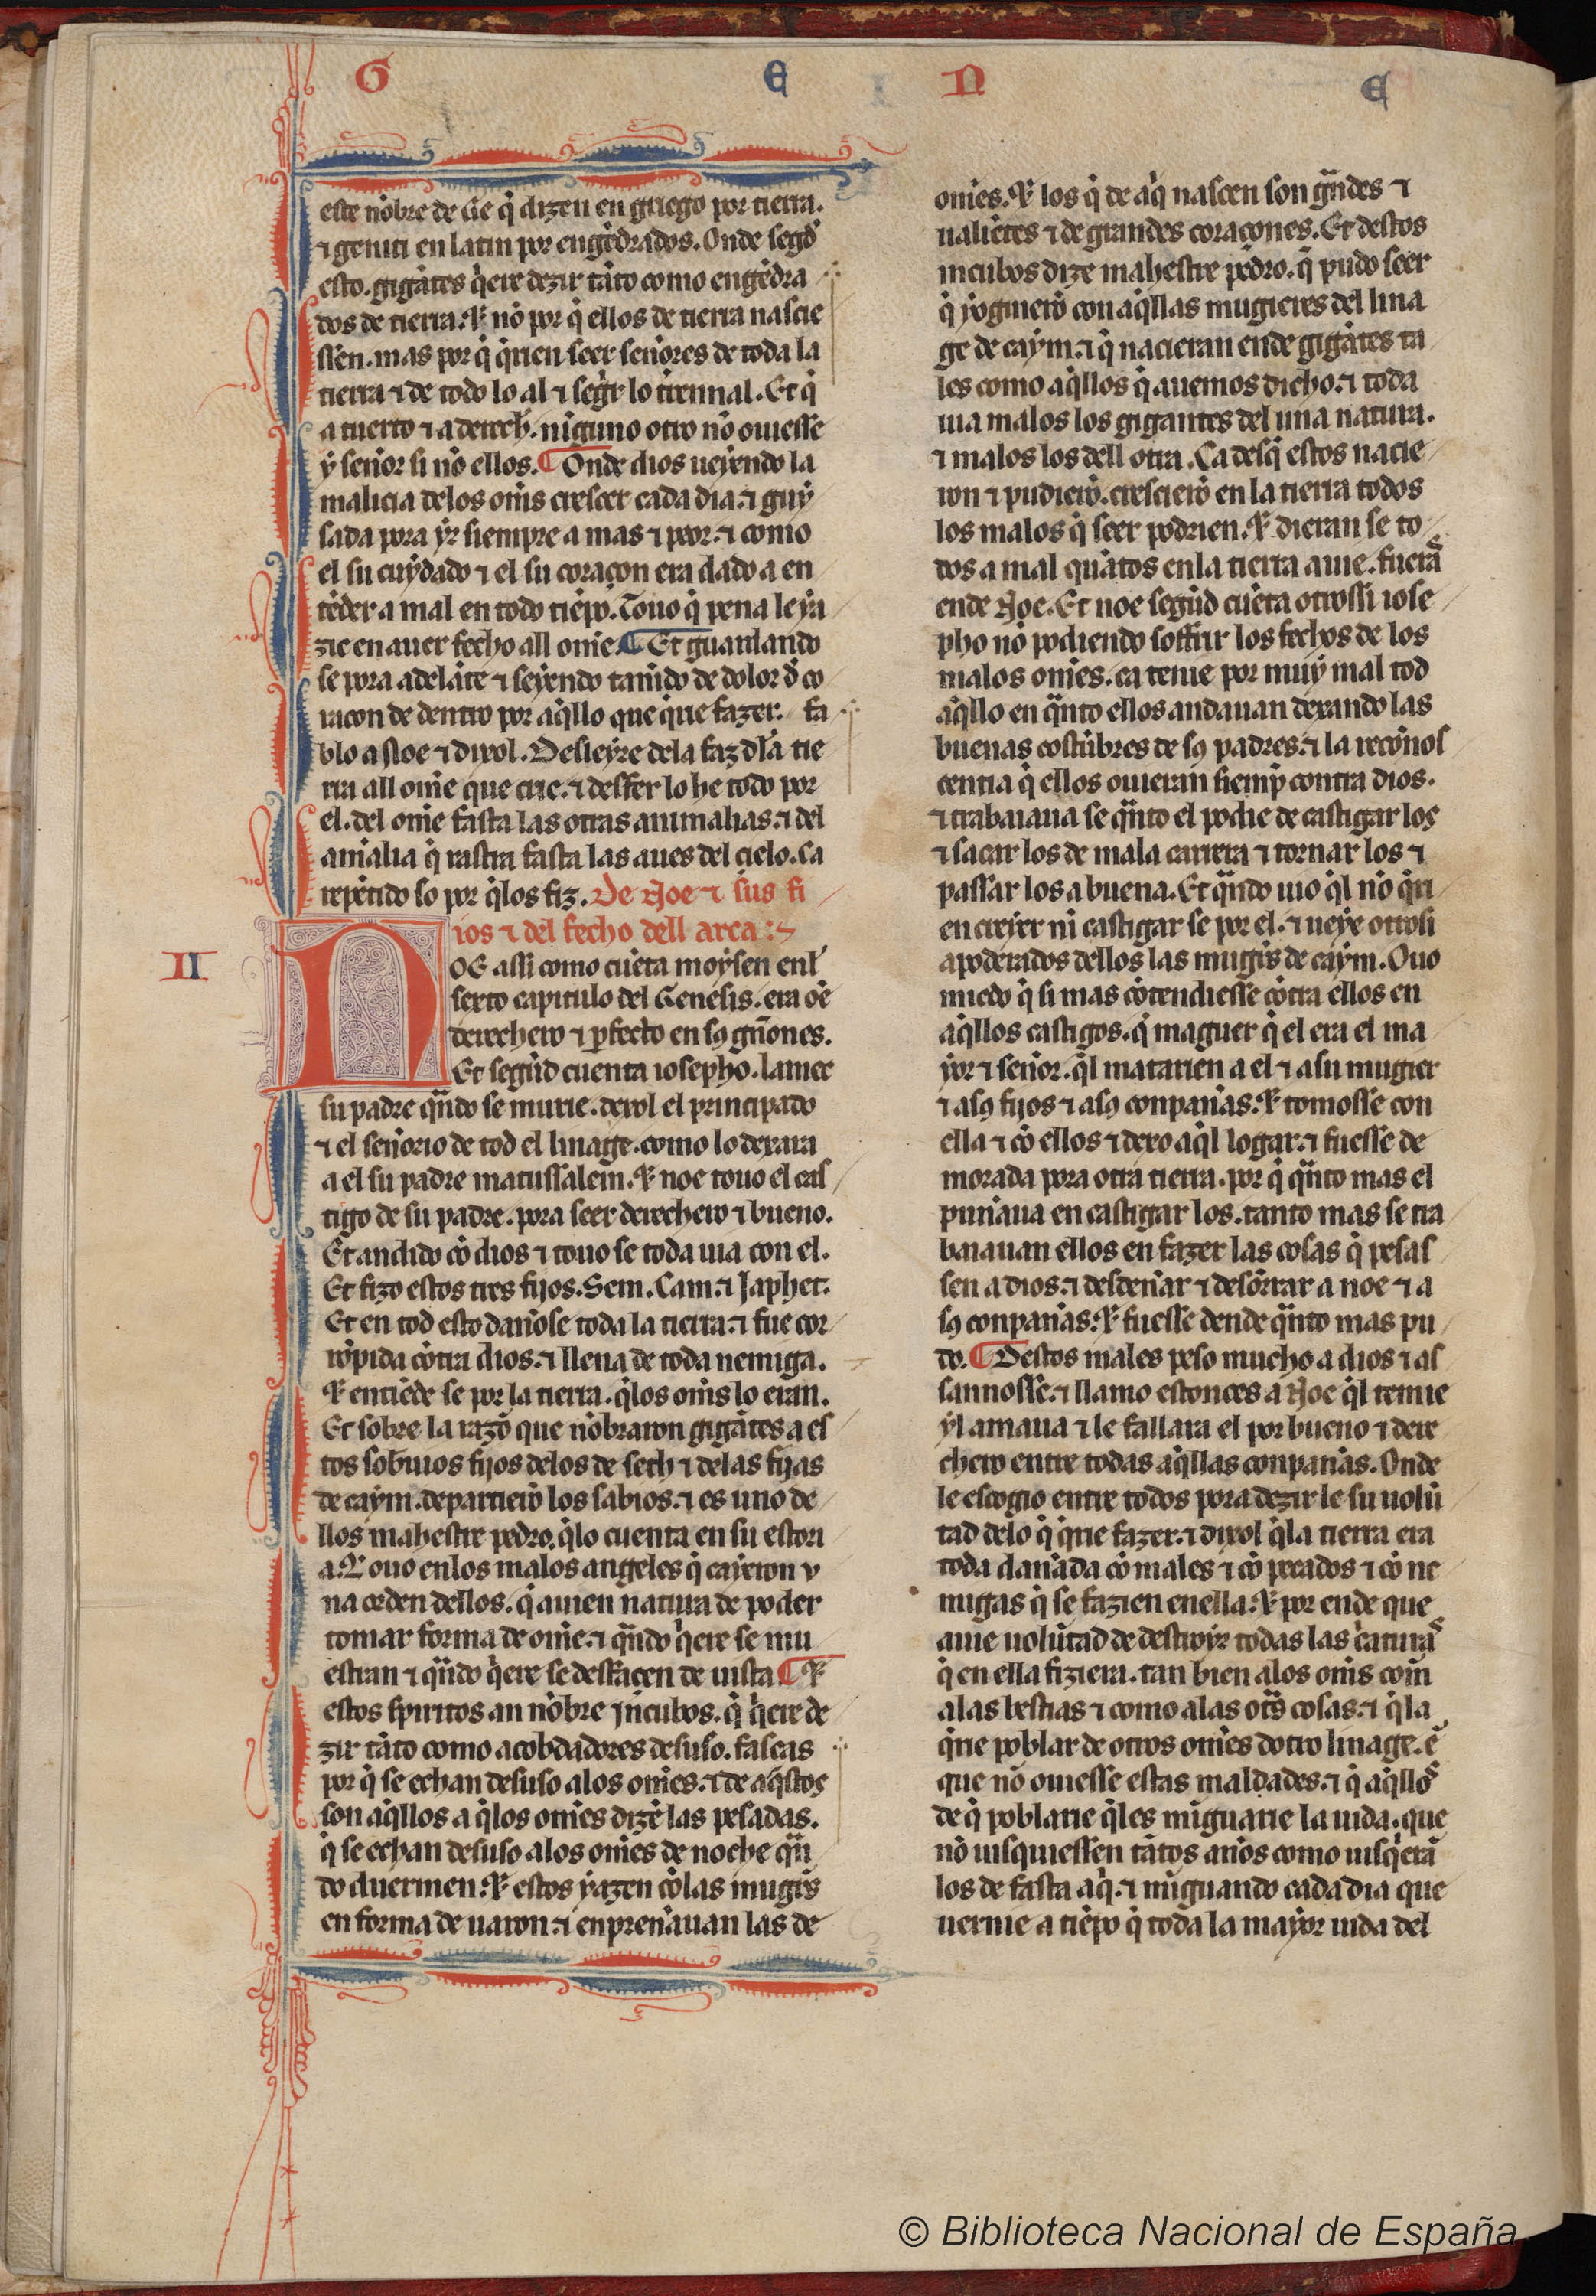 G E N E
este nõbre de Ge q̃ dizen en griego por tierra.
⁊ geniti en latin por engẽdrados. Onde segũd
esto. gigãtes q̃ere dezir tãto como engẽdra
dos de tierra. ⁊ nõ por q̃ ellos de tierra nascie
ssen. mas por q̃ q̃rien seer señores de toda la
tierra ⁊ de todo lo al ⁊
a tuerto ⁊ a derech. niguno otro nõ ouiesse
ẏ señor si nõ ellos. ¶ Onde dios ueẏendo la
malicia delos om̃s crescer cada dia. ⁊ guẏ
sada pora ẏr siempre a mas ⁊ peor. ⁊ como
el su cuẏdado ⁊ el su coraçon era dado a en
tẽder a mal en todo tiẽpo. Touo q̃ pena le ẏa
zie en auer fecho all om̃e. ¶ Et guardando
se pora adelãte ⁊ seẏendo tañido de dolor d̃ co
racon de dentro por aq̃llo que q̃rie fazer. fa
blo a Noe ⁊ dixol. Desleẏre dela faz dl̃a tie
rra all om̃e que crie. ⁊ desfer lo he todo por
el. del om̃e fasta las otras animalias. ⁊ del
amalia q̃ rastra fasta las aues del cielo. Ca
repẽtido so por q̃los fiz. De Noe ⁊ sus fi
ios ⁊ del fecho dell arca :~
II
NOE assi como cuẽta moẏsen enl
sexto capitulo del Genesis. era oẽ
derechero ⁊ p̃fecto en sꝯ gñones.
Et segũd cuenta iosepho. lamec
su padre q̃ndo se murie. dexol el principado
⁊ el señorio de tod el linage. como lo dexara
a el su padre matussalem. ⁊ noe touo el cas
tigo de su padre. pora seer derechero ⁊ bueno.
Et andido cõ dios ⁊ touo se toda uia con el.
Et fizo estos tres fijos. Sem. Cam. ⁊ Japhet.
Et en tod esto dañose toda la tierra. ⁊ fue cor
rõpida cõtra dios. ⁊ llena de toda nemiga.
⁊ entiẽde se por la tierra. q̃los om̃s lo eran.
Et sobre la razõ que nõbraron gigãtes a es
tos sobriuos fijos delos de seth ⁊ delas fijas
de caẏm. departierõ los sabios. ⁊ es uno de
llos mahestre pedro. q̃lo cuenta en su estori
a. ⁊ ouo enlos malos angeles q̃ caẏeron v
na orden dellos. q̃ auien natura de poder
tomar forma de om̃e. ⁊ q̃ndo q̃ere se mu
estran ⁊ q̃ndo q̃ere se desfaçen de uista ¶ ⁊
estos spiritos an nõbre jncubos. q̃ q̃ere de
zir tãto como acobdadores desuso. fascas
por q̃ se echan desuso alos om̃es. ⁊ de aq̃stos
son aq̃llos a q̃los om̃es dizẽ las pesadas.
q̃ se echan desuso alos om̃es de noche q̃n
do duermen. ⁊ estos ẏazen cõlas mugĩs
en forma de uaron. ⁊ enpreñauan las de
om̃es. ⁊ los q̃ de aq̃ nascen son g̃ndes ⁊
ualiẽtes ⁊ de grandes coraçones. Et destos
incubos dize mahestre pedro. q̃ pudo seer
q̃ ẏoguierõ con aq̃llas mugieres del lina
ge de caẏm. ⁊ q̃ nacieran ende gigãtes ta
les como aq̃llos q̃ auemos dicho. ⁊ toda
uia malos los gigantes del una natura.
⁊ malos los dell otra. Ca desq̃ estos nacie
ron ⁊ pudierõ. crescierõ en la tierra todos
los malos q̃ seer podrien. ⁊ dieran se to
dos a mal quãtos enla tierra auie. fuerã
ende Noe. Et noe segũd cuẽta otrossi iose
pho nõ podiendo soffrir los fechos de los
malos om̃es. ca tenie por muẏ mal tod
aq̃llo en q̃nto ellos andauan dexando las
buenas costũbres de sꝯ padres. ⁊ la reconos
centia q̃ ellos ouieran siemp̃ contra dios.
⁊ trabaiaua se q̃nto el podie de castigar los
⁊ sacar los de mala carrera ⁊ tornar los ⁊
passar los a buena. Et q̃ndo uio q̃l nõ q̃ri
en creẏer ni castigar se por el. ⁊ ueẏe otrosi
apoderados dellos las mugĩs de caẏm. Ouo
miedo q̃ si mas cõtendiesse cõtra ellos en
aq̃llos castigos. q̃ maguer q̃ el era el ma
ẏor ⁊ señor. q̃l matarien a el ⁊ a su mugier
⁊ a sꝯ fijos ⁊ a sꝯ conpañas. ⁊ tomosse con
ella ⁊ cõ ellos ⁊ dexo aq̃l logar. ⁊ fuesse de
morada pora otra tierra. por q̃ q̃nto mas el
puñaua en castigar los. tanto mas se tra
baiauan ellos en fazer las cosas q̃ pesas
sen a dios. ⁊ desdeñar ⁊ desõrrar a noe ⁊ a
sꝯ conpañas. ⁊ fuesse dende q̃nto mas pu
do. ¶ Destos males peso mucho a dios ⁊ as
sannosse. ⁊ llamo estonces a Noe q̃l temie
ẏl amaua ⁊ le fallara el por bueno ⁊ dere
chero entre todas aq̃llas conpañas. Onde
le escogio entre todos pora dezir le su uolũ
tad delo q̃ q̃rie fazer. ⁊ dixol q̃la tierra era
toda dañada cõ males ⁊ cõ pecados ⁊ cõ ne
migas q̃ se fazien enella. ⁊ por ende que
auie uolũtad de destroẏr todas las c̃aturas
q̃ en ella fiziera. tan bien alos om̃s com̃
alas bestias ⁊ como alas ot̃s cosas. ⁊ q̃la
q̃rie poblar de otros om̃es dotro linage. ẽ
que nõ ouiesse estas maldades. ⁊ q̃ aq̃llos
de q̃ poblarie q̃les mĩguarie la uida. que
nõ uisquiessen tãtos años como uisq̃erã
los de fasta aq̃. ⁊ mĩguando cada dia que
uernie a tiẽpo q̃ toda la maẏor uida del
© Biblioteca Nacional de España